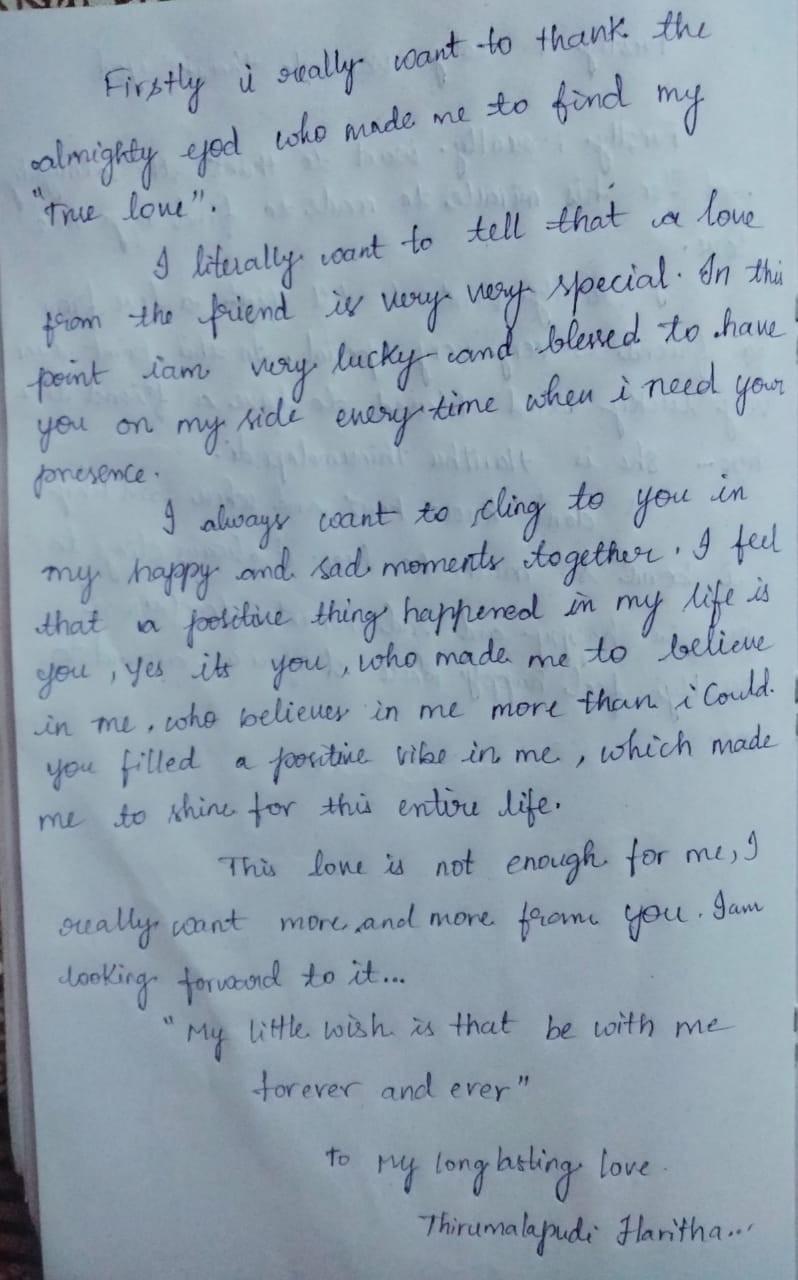 Firstly i really want to thank the
almighty god who made me to find my
"True love".
I literally want to tell that a love
from the friend is very very special. In this
point iam very lucky and blessed to have
you on my side every time when i need your
presence.
I always want to cling to you in
my happy and sad moments together. I feel
that a positive thing happened in my life is
you, yes its you, who made me to believe
in me, who believes in me more than i Could.
you filled a positive vibe in me, which made
me to shine for this entire life.
This love is not enough for me, I
really want more and more from you. Iam
looking forward to it...
"My little wish is that be with me
forever and ever"
To My long lasting love.
Thirumalapudi Haritha...